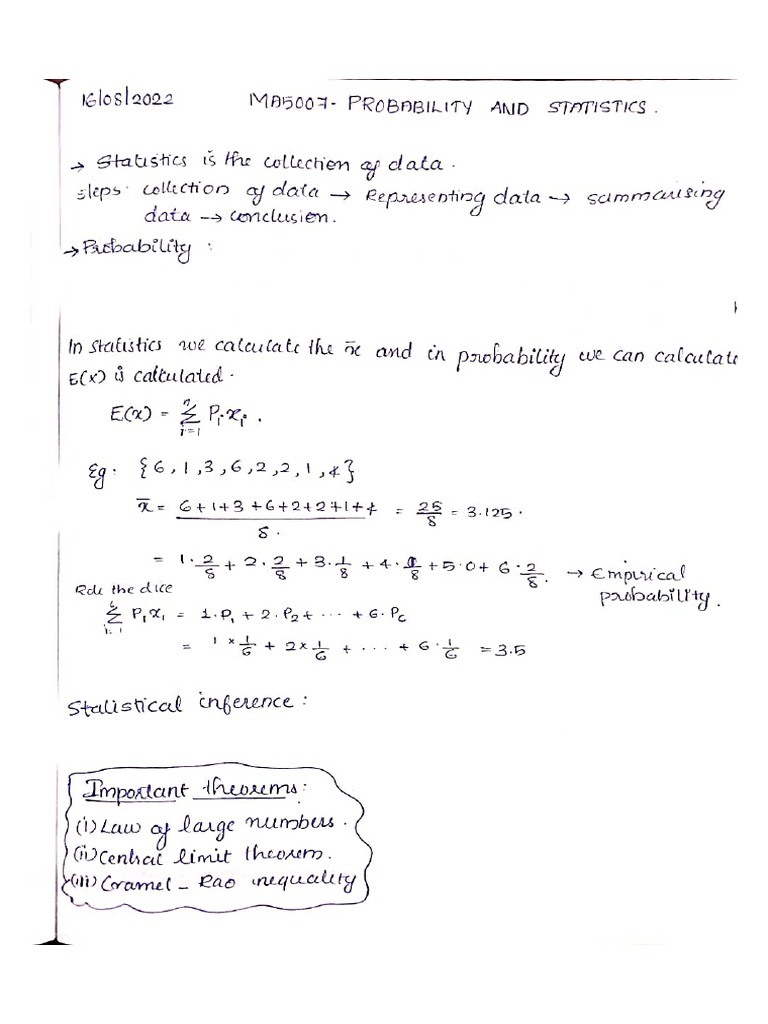 16/08/2022 MA5007- PROBABILITY AND STATISTICS.
→ Statistics is the collection of data.
steps: collection of data → Representing data → summarising
data → conclusion.
→ Probability :
In statistics we calculate the x̄ and in probability we can calculate
E(x) is calculated.
E(x) = Σ_{i=1}^{n} P_i x_i .
Eg. {6,1,3,6,2,2,1,4}
x̄ = (6+1+3+6+2+2+1+4)/8. = 25/8 = 3.125.
= 1·2/8 + 2·2/8 + 3·1/8 + 4·1/8 + 5·0 + 6·2/8. → Empirical
probability.
Role the dice
Σ_{i=1}^{6} P_i x_i = 1·P_1 + 2·P_2 + ··· + 6·P_6
= 1×1/6 + 2×1/6 + ... + 6·1/6 = 3.5
Statistical inference :
Important theorems:
(i) Law of large numbers.
(ii) Central limit theorem.
(iii) Coramel - Rao inequality